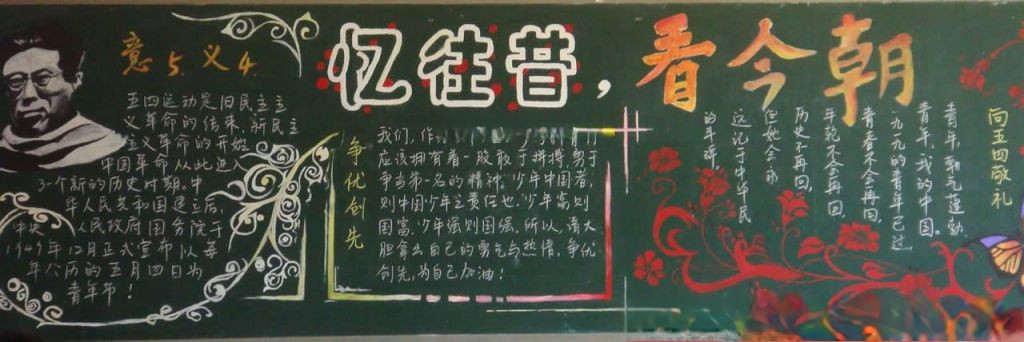 意5.义4.
忆往昔，看今朝
五四运动是旧民主主
义革命的结束，新民主
主义革命的开始，
中国革命从此进入
了一个新的历史时期。中
华人民共和国建立后，
中央人民政府国务院于
1949年12月正式宣布以每
年公历的五月四日为
青年节！
争优创先
我们，作
应该拥有着一股敢于拼搏，勇于
争当第一名的精神。少年中国者，
则中国少年之责任也。少年高则
国高，少年强则国强。所以，请大
胆拿出自己的勇气与热情，争优
创先，为自己加油！
向五四敬礼
青年，朝气蓬勃。
青年，我的中国。
一九一九的青年已过
青春不会再回，
年轮不会再回，
历史不再回，
但她会永
这记于中华民
的丰碑。